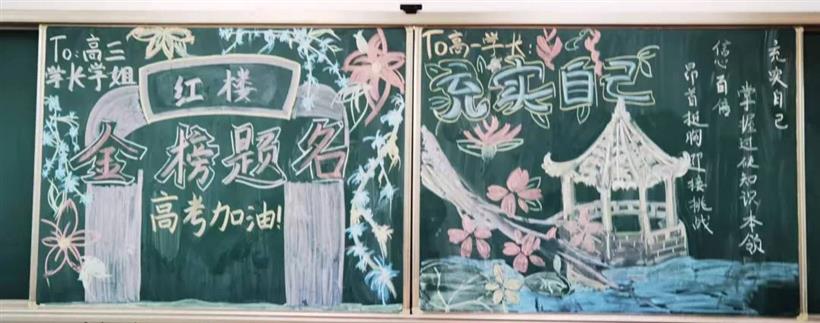 To:高三
学长学姐
红楼
金榜题名
高考加油!
To高一学长:
充实自己
充实自己
掌握过硬知识本领
信心百倍
昂首挺胸迎接挑战